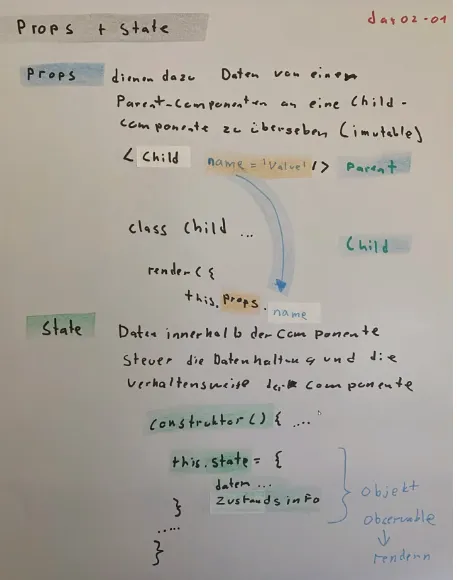 Props + State
day02-01
Props dienen dazu Daten von einem
Parent-Componenten an eine Child-
Componente zu überseben (imutable)
< Child name = 'Value' /> Parent
class Child ...
Child
render( {
this.props.name
State Daten innerhalb der Componente
Steuer die Datenhaltung und die
Verhaltensweise der Componente
construktor() { ....
this.state = {
daten ...
Zustandsinfo
}
.....
}
Objekt
Observable
↓
rendern